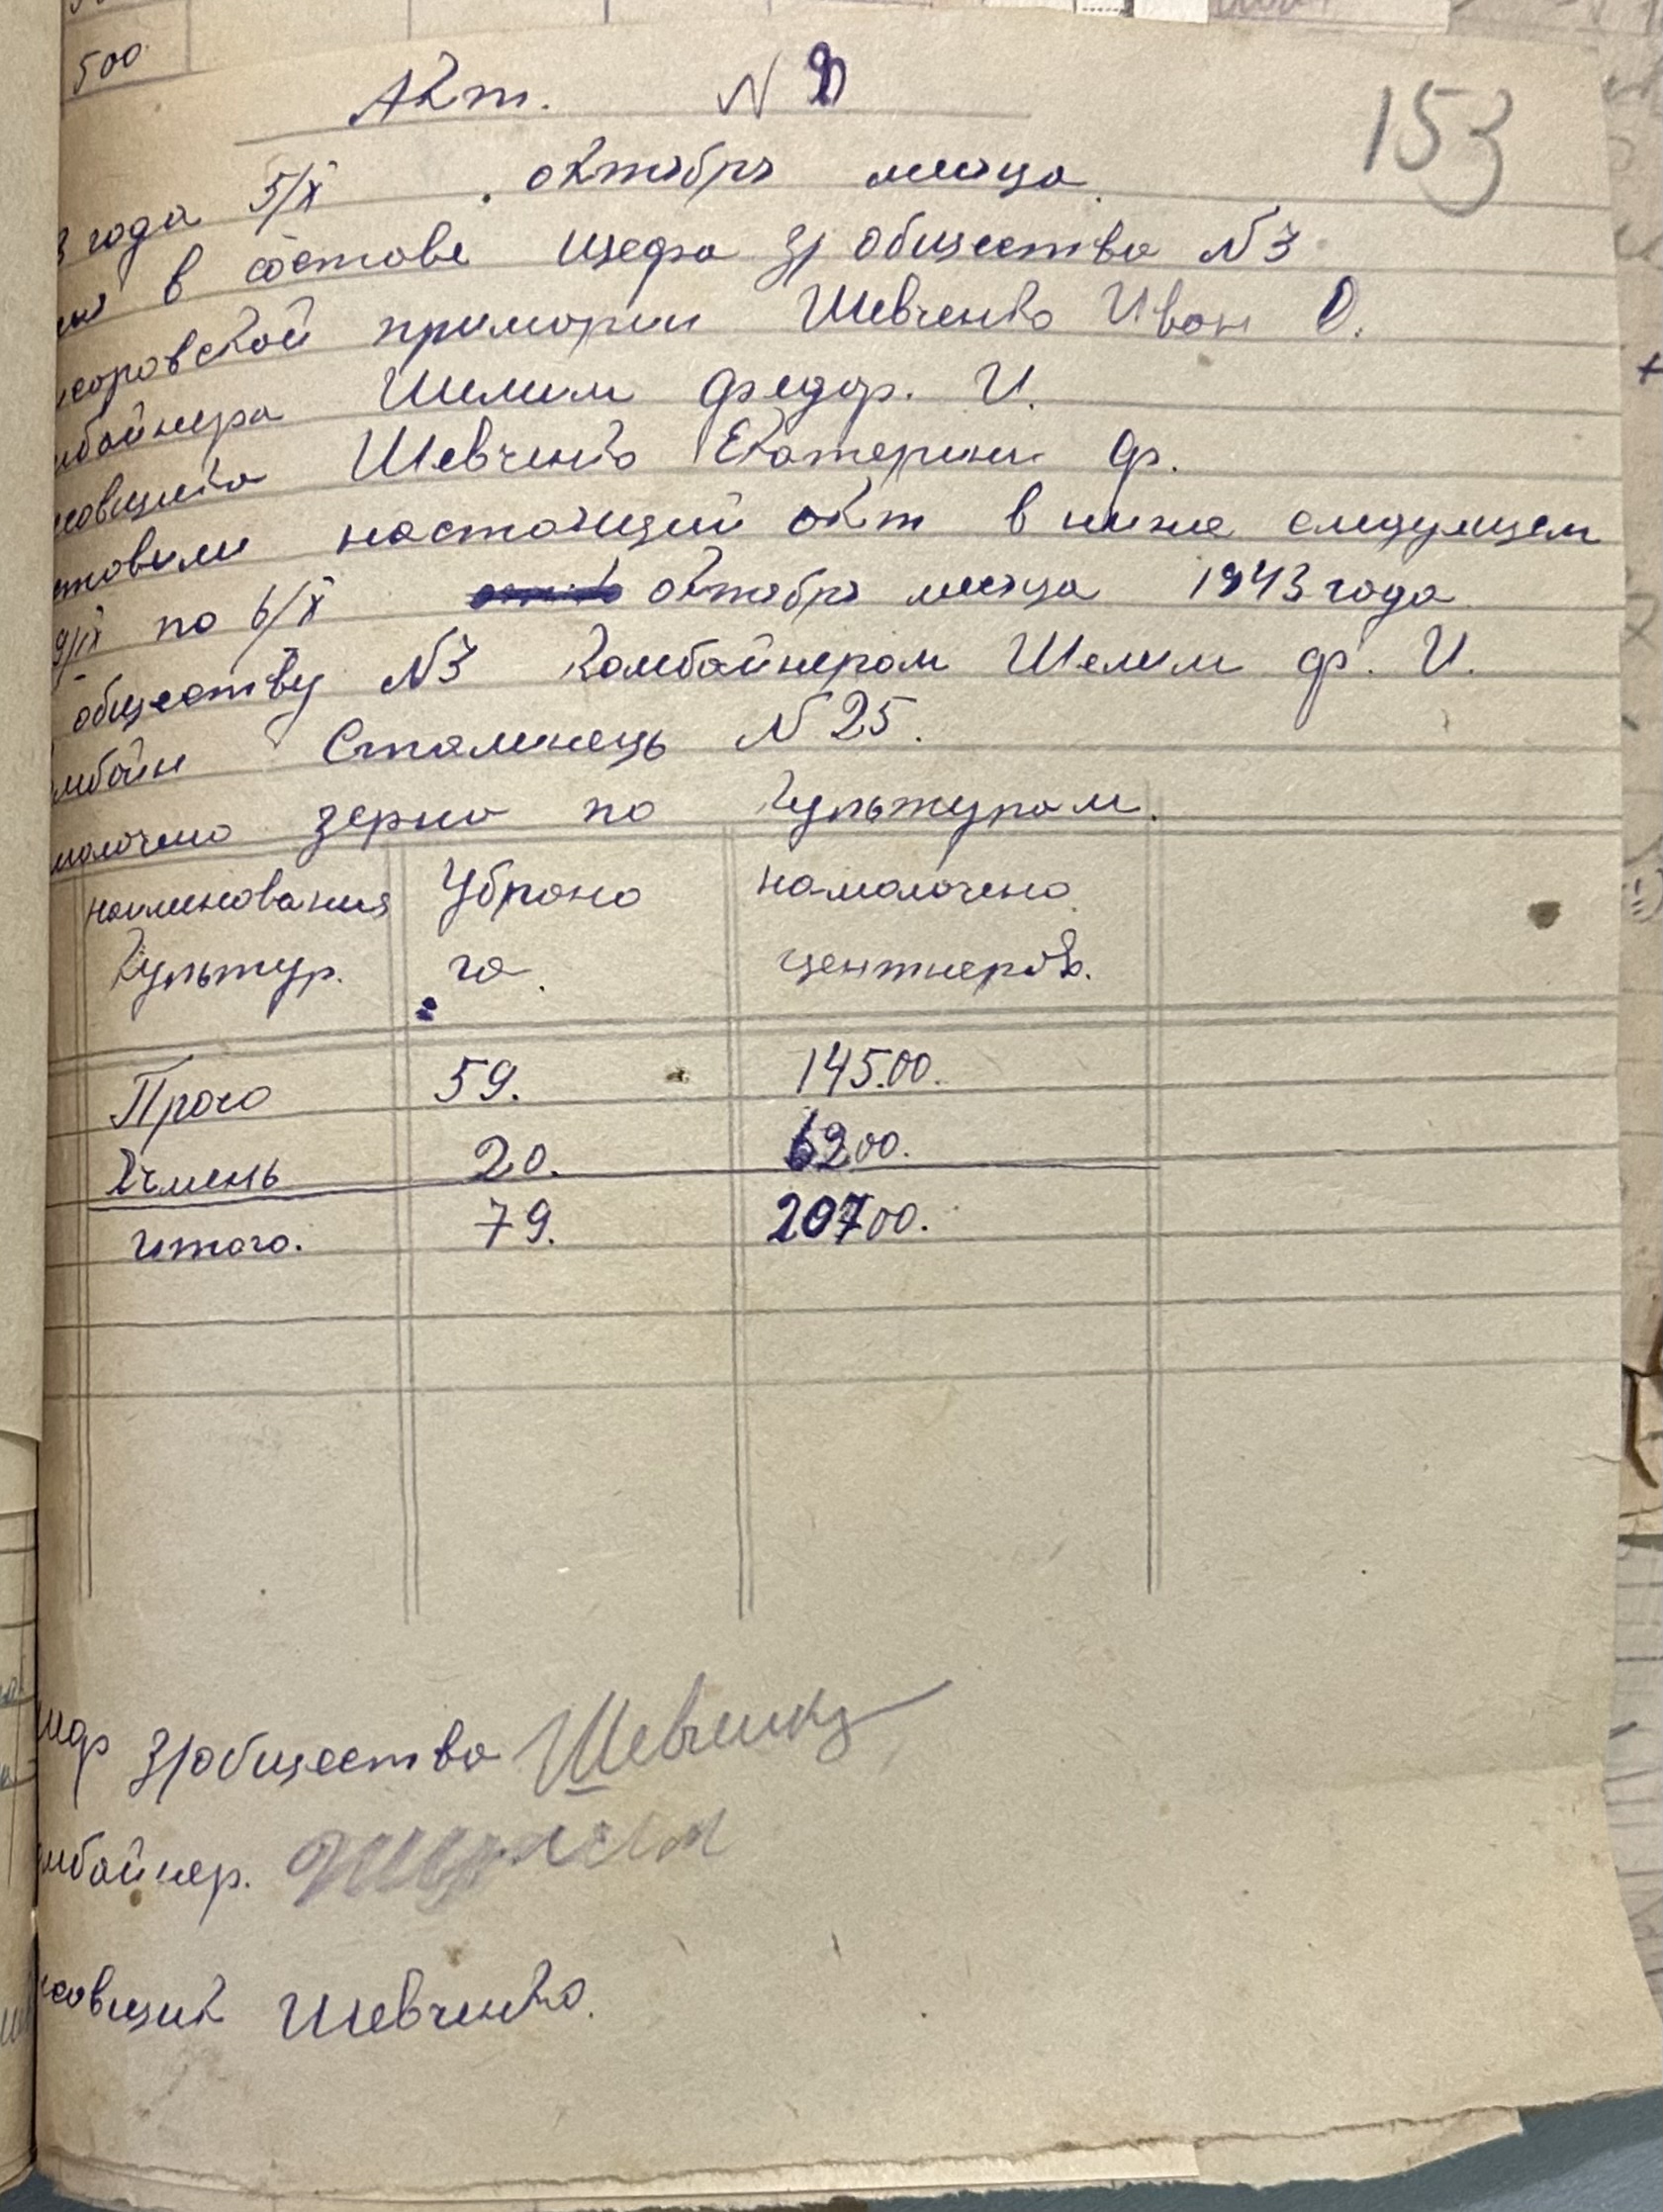 500
Акт. N
153
3 года 5/X октября месяца
в состове шефа з/общества N3
примории Шевченко Иван О.
мбайнера Шелим Федор. И.
совщика Шевченко Екатерини Ф.
ставили настоящий акт в ниже следующем
9/IX по 6/X октября месяца 1943 года
обществу N3 комбайнером Шелим Ф. И.
мбайн Сталинець N 25.
молочено зерно по культурам.
наименования Убрано намолочено
культур. га. центнеров.
Просо 59. 145.00.
Ячмень 20. 6200.
итого. 79. 20700.
шеф з/общества Шевченко
мбайнер. Шелим
совщик Шевченко.